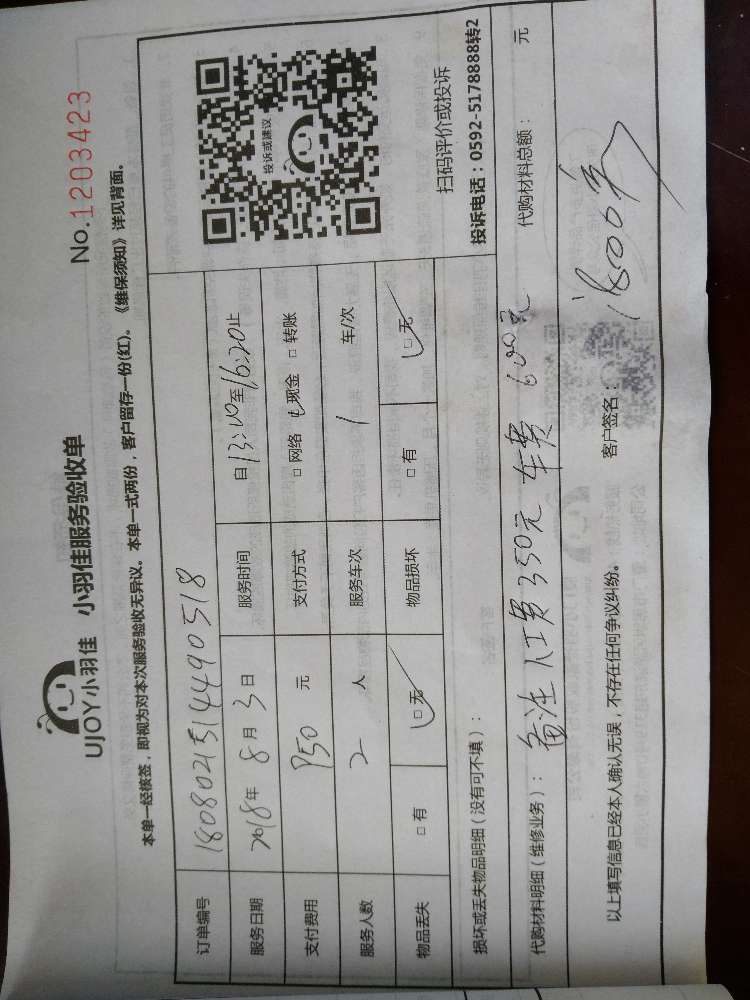 UJOY小羽佳 小羽佳服务验收单 No.1203423
本单一经核签，即视为对本次服务验收无异议。本单一式两份，客户留存一份(红)。《维保须知》详见背面。
订单编号 18080215144490518
服务日期 2018年 8月 3日 服务时间 自13:00至16:20止
支付费用 950 元 支付方式 □网络 □现金 □转账
服务人数 2 人 服务车次 1 车/次
物品丢失 □有 □无 物品损坏 □有 □无
投诉或建议
扫码评价或投诉
投诉电话：0592-5178888转2
损坏或丢失物品明细（没有可不填）：
代购材料明细（维修业务）：备注 人工费350元 车费600元 代购材料总额： 元
以上填写信息已经本人确认无误，不存在任何争议纠纷。 客户签名：